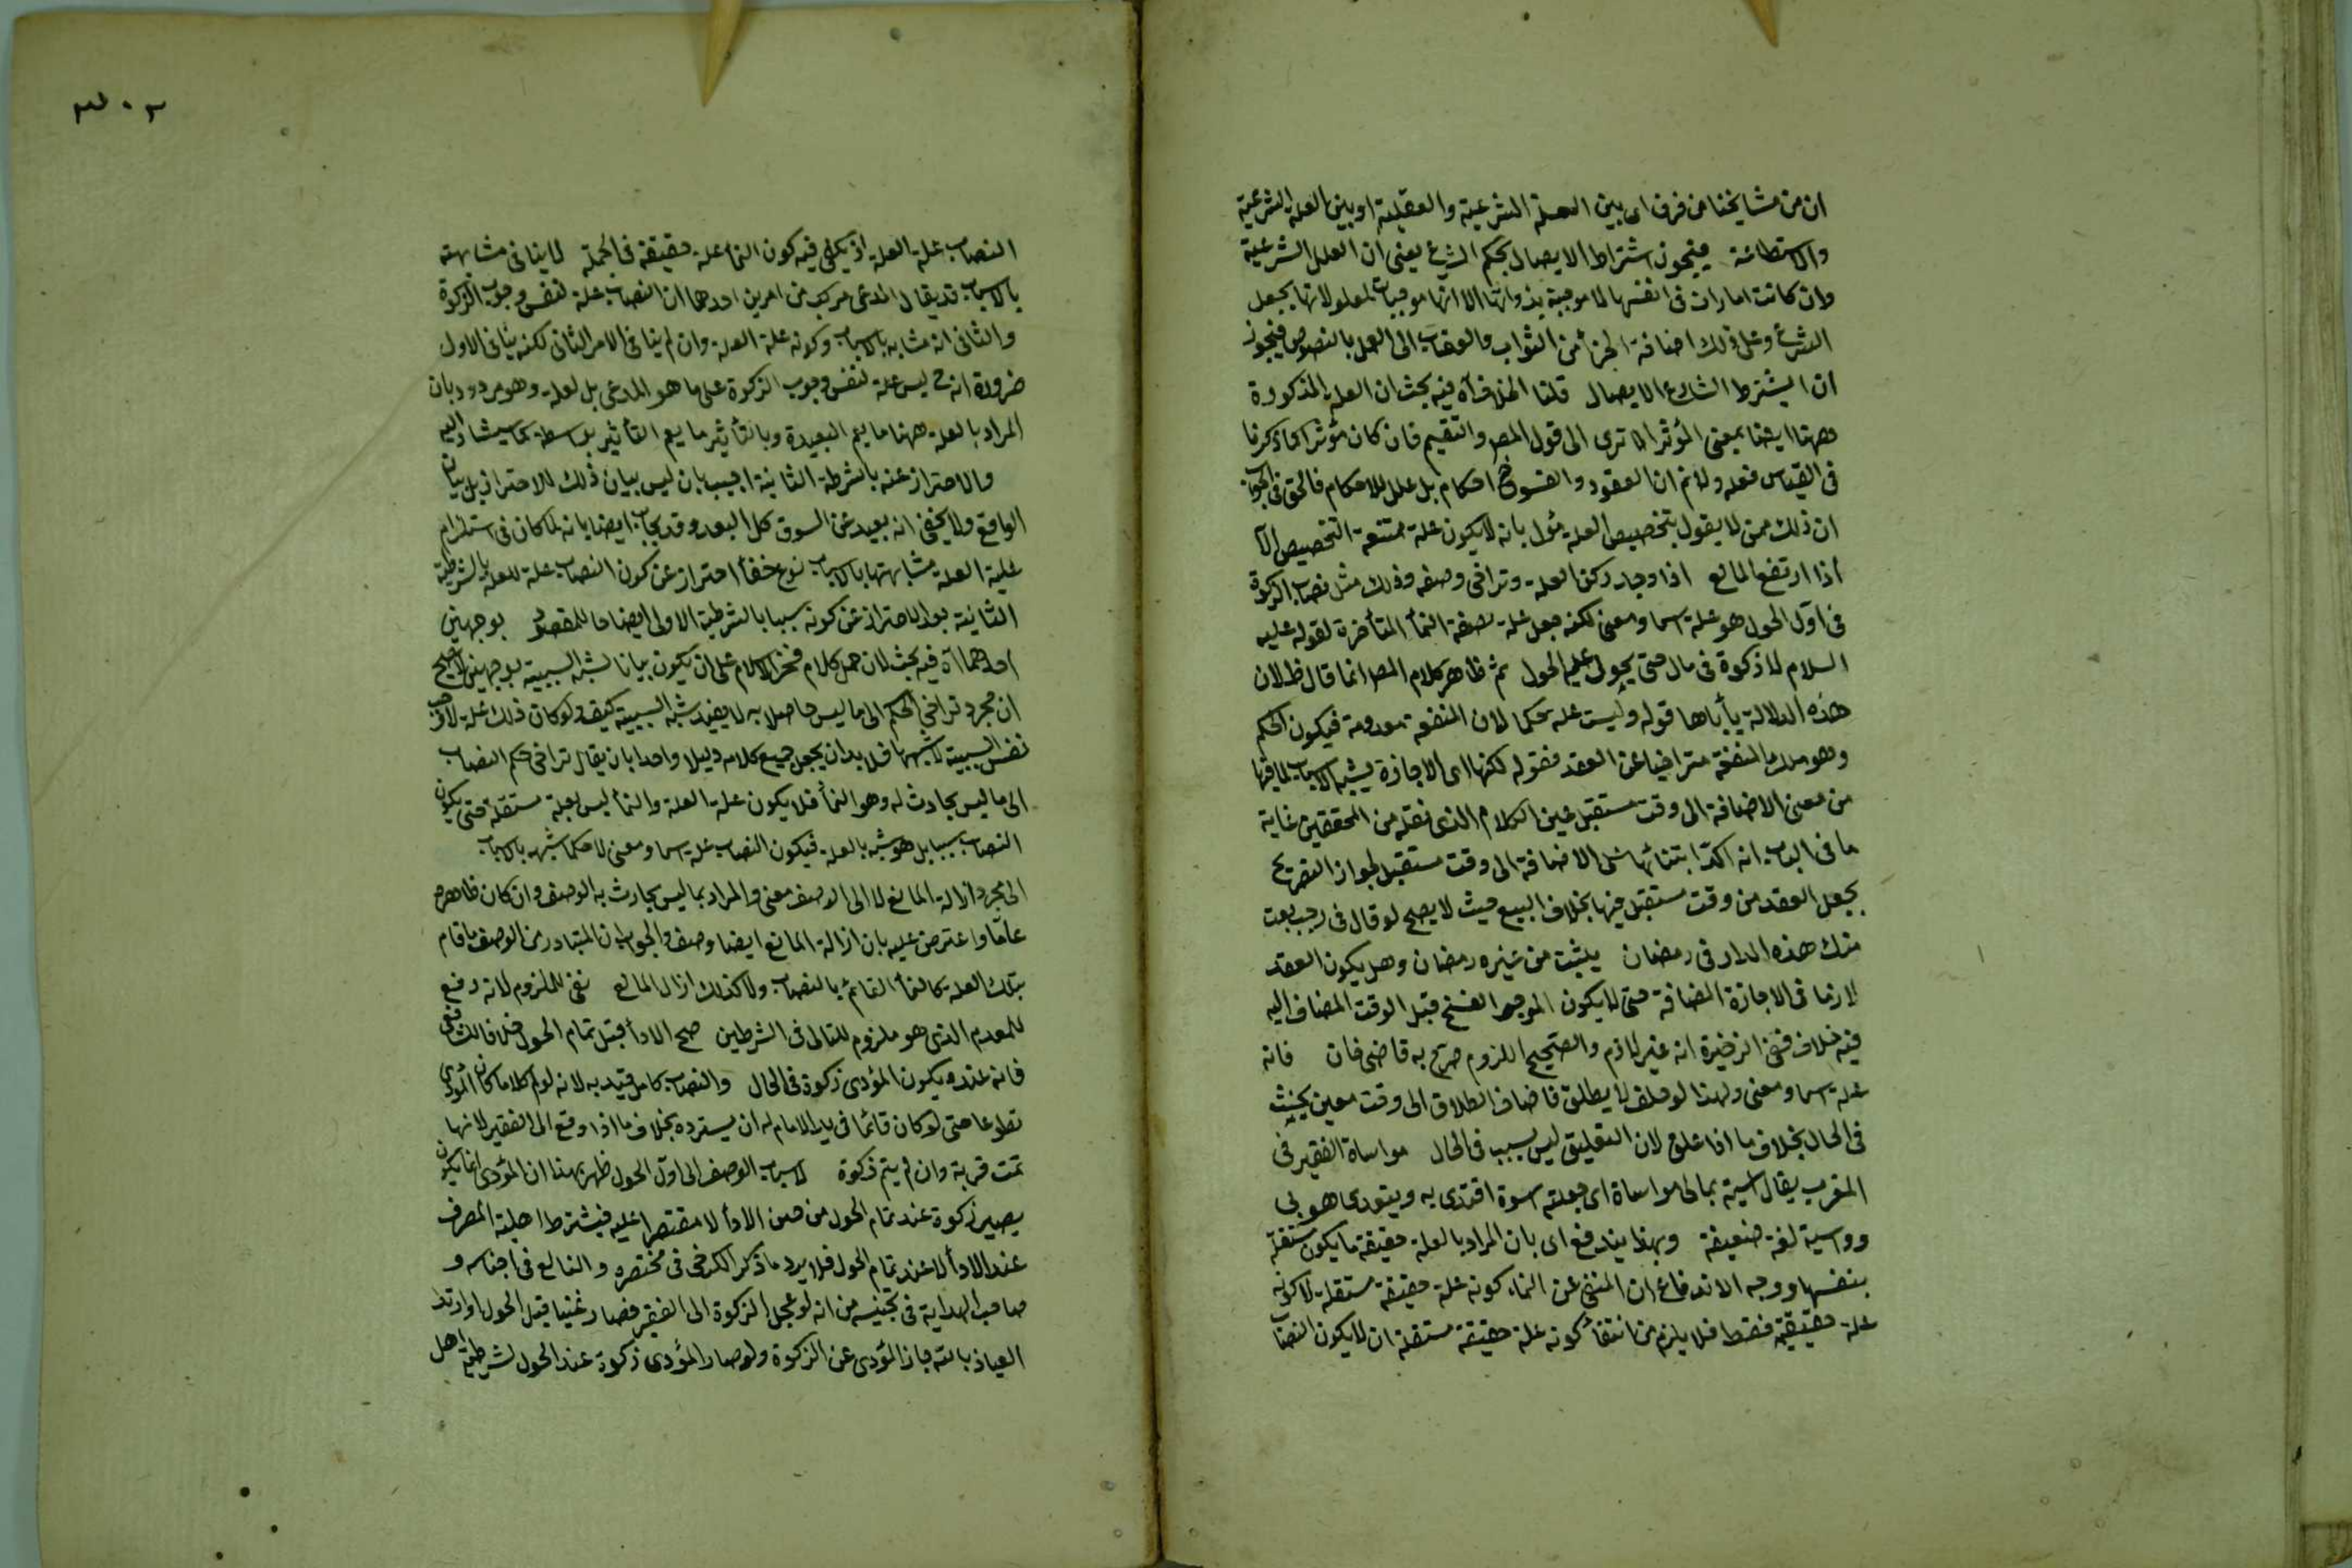 ان من مشايخنا من فرق اى بين العلة الشرعية والعقلية او بين العلة الشرعية
والاستطاعة فيجوز اشتراط الايصال بحكم الشرع يعنى ان العلل الشرعية
وان كانت امارات فى انفسها لا موجبة بذواتها الا انها موجبات لمعلولاتها بجعل
الشرع وعلى ذلك اضافة الجزأ من الثواب والعقاب الى العمل بالنصوص فيجوز
ان يشترط الشارع الايصال قلنا الخلاف آه فيه بحث ان العلة المذكورة
ههنا ايضا بمعنى المؤثر الا ترى الى قول المصر والتقيم فان كان مؤثرا كما ذكرنا
فى القياس فعله ولا نم ان العقود والفسوخ احكام بل علل للاحكام فالحق فى الجواب
ان ذلك ممن لا يقول بتخصيص العلة مؤل بانه لا يكون علة ممتنعة التخصيص الآ
اذا ارتفع المانع اذا وجد ركن العلة وتراخى وصفه وذلك مثل نصاب الزكوة
فى اول الحول هو علة اسما ومعنى لكنه جعل علة بصفة النمأ المتأخرة لقوله عليه
السلام لا زكوة فى مال حتى يحول عليه الحول ثم ظاهر كلام المصر انما قال ظ لان
هذه الدلالة يأباها قوله وليست علة حكما لان المنفعة معدومة فيكون الحكم
وهو ملك المنفعة متراخيا عن العقد فقوله لكنها اى الاجازة يشبه الاسباب لما فيها
من معنى الاضافة الى وقت مستقبل عين الكلام الذى نقله من المحققين غاية
ما فى الباب انه اكد ابتنائها على الاضافة الى وقت مستقبل لجواز التصريح
بجعل العقد من وقت مستقبل فيها بخلاف البيع حيث لا يصح لو قال فى رجب بعت
منك هذه الدار فى رمضان يثبت من غيره رمضان وهل يكون العقد
لازما فى الاجازة المضافة حتى لا يكون الموجر الفسخ قبل الوقت المضاف اليه
فيه خلاف ففى الذخيرة انه غير لازم والصحيح اللزوم صرح به قاضى خان فانه
علة اسما ومعنى ولهذا لو حلف لا يطلق فاضاف الطلاق الى وقت معين يحنث
فى الحال بخلاف ما اذا علق لان التعليق ليس بسبب فى الحال مواساة الفقير فى
المغرب يقال آسيته بمالى مواساة اى جعلته اسوة اقتدى به ويقتدى هو بى
وواسيته لغة ضعيفة وبهذا يندفع اى بان المراد بالعلة حقيقة ما يكون مستقلة
بنفسها ووجه الاندفاع ان المنفى عن النماء كونه علة حقيقة مستقلة لا كونه
علة حقيقية فقط فلا يلزم من انتفأ كونه علة حقيقة مستقلة ان لا يكون النصاب
النصاب علة العلة اذ يكفى فيه كون النمأ علة حقيقة فى الجملة لا ينافى مشابهته
بالاسباب قد يقال المدعى مركب من امرين احدهما ان النصاب علة لنفس وجوب الزكوة
والثانى انه مشابه بالاسباب وكونه علة العلة وان لم ينافى الامر الثانى لكنه ينافى الاول
ضرورة انه ح ليس علة لنفس وجوب الزكوة على ما هو المدعى بل لعلة وهو مردود بان
المراد بالعلة ههنا ما يعم البعيدة وبالتأثير ما يعم التأثير بواسطة كما سيشار اليه
والاحتراز عنه بالشرطة الثانية اجيب بان ليس بيان ذلك للاحتراز بل بيان
الواقع ولا يخفى انه بعيد عن السوق كل البعد وقد يجاب ايضا بانه لما كان فى استلزام
علية العلة مشابهتها بالاسباب نوع خفأ احتراز عن كون النصاب علة للعلة بالشرطية
الثانية بعد الاحتراز عن كونه سببا بالشرطية الاولى ايضاحا للمقصود بوجهين
احدهما آه فيه بحث لان حمل كلام فخر الاسلام على ان يكون بيانا لشبه السببية بوجهين لا يصح
ان مجرد تراخى الحكم الى ما ليس حاصلا به لا يفيد شبه السببية كيف ولو كان ذلك علة لاوجب
نفس السببية لا شبهها فلا بد ان يجعل جميع كلامه دليلا واحدا بان يقال تراخى حكم النصاب
الى ما ليس بحادث له وهو النمأ فلا يكون علة العلة والنمأ ليس بعلة مستقلة حتى يكون
النصاب سببا بل هو شبه بالعلة فيكون النصاب علة اسما ومعنى لا حكما شبه بالاسباب
الى مجرد ازالة المانع لا الى الوصف معنى والمراد بما ليس بحادث به الوصف وان كان ظاهره
عاما واعترض عليه بان ازالة المانع ايضا وصف والجواب ان المتبادر من الوصف ما قام
بتلك العلة كالنمأ القائم بالنصاب ولا كذلك ازال المانع نفى للملزوم لانه رفع
للمعدم الذى هو ملزوم للتالى فى الشرطين صح الادأ قبل تمام الحول خلافا للشافعى
فانه عنده يكون المؤدى زكوة فى الحال والنصاب كامل قيد به لانه لو لم كاملا كان المؤدى
تطوعا حتى لو كان قائما فى يد الامام له ان يسترده بخلاف ما اذا وقع الى الفقير لانها
تمت قربة وان لم يتم زكوة لاسباب الوصف الى اول الحول ظهر بهذا ان المؤدى انما يكون
يصير زكوة عند تمام الحول من حين الادأ لا مقتصرا عليه فيشترط اهلية المصرف
عند الادأ لا عند تمام الحول فلا يرد ما ذكر الكرخى فى مختصره و الناطفى فى اجناسه و
صاحب الهداية فى تجنيسه من انه لو عجل الزكوة الى الفقير فصار غنيا قبل الحول او ارتد
العياذ بالله جاز المؤدى عن الزكوة ولو صار المؤدى زكوة عند الحول لشرطية اهل